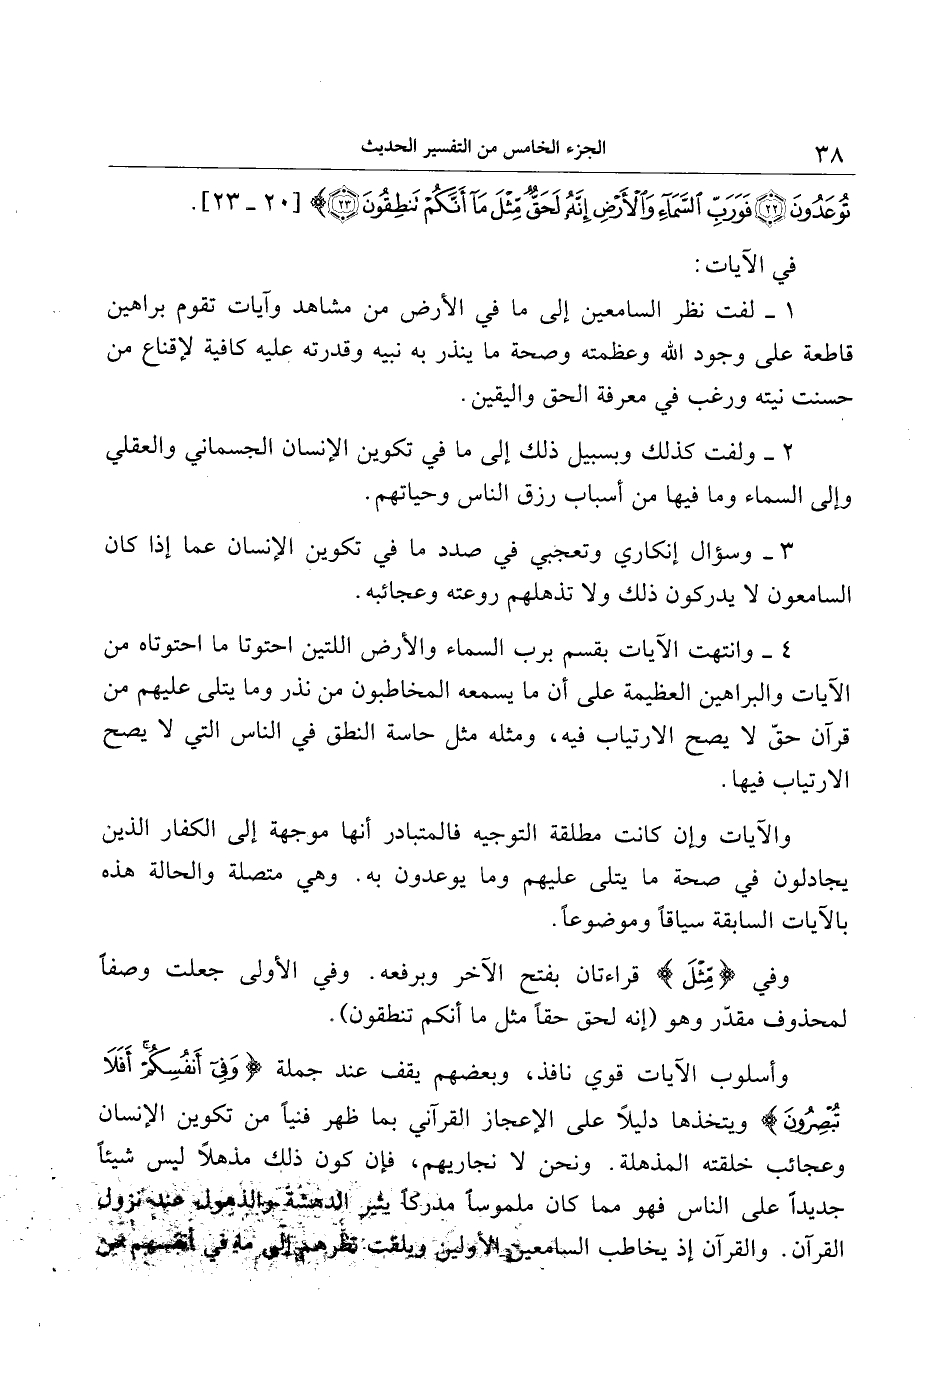 ٣٨ الجزء الخامس من التفسير الحديث
تُوعَدُونَ ﴿٢٢﴾ فَوَرَبِّ ٱلسَّمَآءِ وَٱلْأَرْضِ إِنَّهُۥ لَحَقٌّ مِّثْلَ مَآ أَنَّكُمْ تَنطِقُونَ ﴿٢٣﴾﴾ [٢٠ ـ ٢٣].
في الآيات:
١ ـ لفت نظر السامعين إلى ما في الأرض من مشاهد وآيات تقوم براهين
قاطعة على وجود الله وعظمته وصحة ما ينذر به نبيه وقدرته عليه كافية لإقناع من
حسنت نيته ورغب في معرفة الحق واليقين.
٢ ـ ولفت كذلك وبسبيل ذلك إلى ما في تكوين الإنسان الجسماني والعقلي
وإلى السماء وما فيها من أسباب رزق الناس وحياتهم.
٣ ـ وسؤال إنكاري وتعجبي في صدد ما في تكوين الإنسان عما إذا كان
السامعون لا يدركون ذلك ولا تذهلهم روعته وعجائبه.
٤ ـ وانتهت الآيات بقسم برب السماء والأرض اللتين احتوتا ما احتوتاه من
الآيات والبراهين العظيمة على أن ما يسمعه المخاطبون من نذر وما يتلى عليهم من
قرآن حقّ لا يصح الارتياب فيه، ومثله مثل حاسة النطق في الناس التي لا يصح
الارتياب فيها.
والآيات وإن كانت مطلقة التوجيه فالمتبادر أنها موجهة إلى الكفار الذين
يجادلون في صحة ما يتلى عليهم وما يوعدون به. وهي متصلة والحالة هذه
بالآيات السابقة سياقاً وموضوعاً.
وفي ﴿مِّثْلَ﴾ قراءتان بفتح الآخر وبرفعه. وفي الأولى جعلت وصفاً
لمحذوف مقدّر وهو (إنه لحق حقاً مثل ما أنكم تنطقون).
وأسلوب الآيات قوي نافذ، وبعضهم يقف عند جملة ﴿وَفِىٓ أَنفُسِكُمْ ۚ أَفَلَا
تُبْصِرُونَ﴾ ويتخذها دليلاً على الإعجاز القرآني بما ظهر فنياً من تكوين الإنسان
وعجائب خلقته المذهلة. ونحن لا نجاريهم، فإن كون ذلك مذهلاً ليس شيئاً
جديداً على الناس فهو مما كان ملموساً مدركاً يثير الدهشة والذهول عند نزول
القرآن. والقرآن إذ يخاطب السامعين الأولين ويلفت نظرهم إلى ما في أنفسهم من